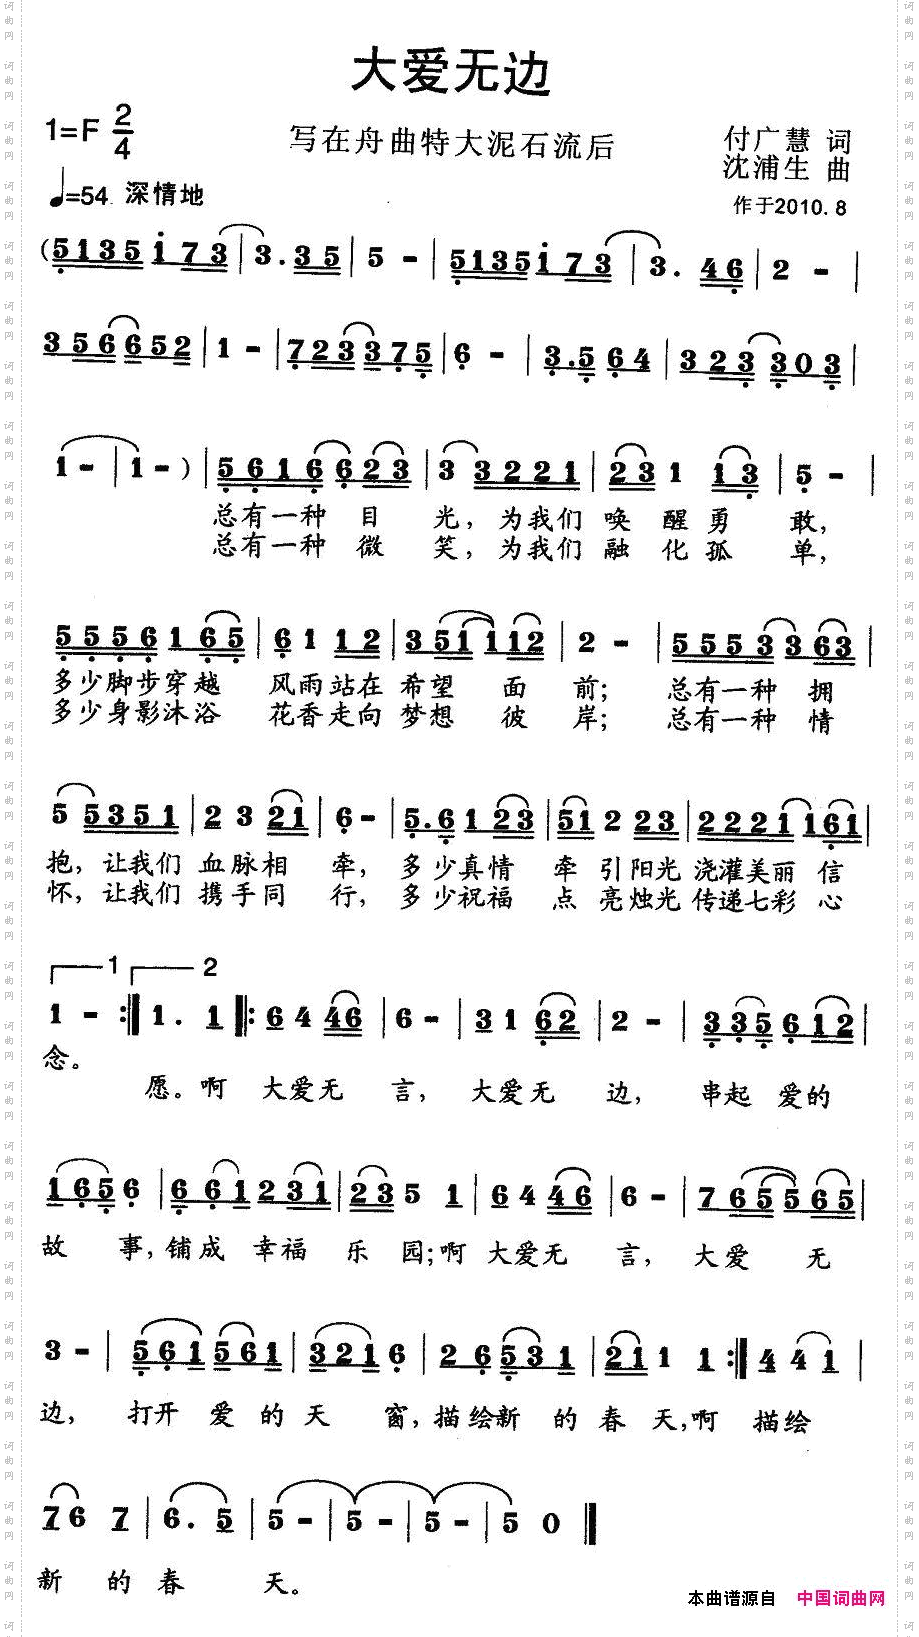 大爱无边
1=F 2/4
写在舟曲特大泥石流后
付广慧 词
沈浦生 曲
♩=54 深情地
作于2010.8
(5135 i 73 | 3.35 | 5 - | 5135 i 73 | 3. 46 | 2 - |
356 652 | 1 - | 723 375 | 6 - | 3.5 64 | 323 303 |
1 - | 1 - ) | 5616 623 | 3 3221 | 23 1 13 | 5 - |
总有一种 目 光, 为我们 唤 醒勇 敢,
总有一种 微 笑, 为我们 融 化孤 单,
5556 1 65 | 61 12 | 351 112 | 2 - | 5553 3 63 |
多少脚步穿越 风雨站在 希望 面 前; 总有一种 拥
多少身影沐浴 花香走向 梦想 彼 岸; 总有一种 情
5 5351 | 2 3 21 | 6 - | 5.6 1 23 | 51 2 23 | 2221 161 |
抱, 让我们 血脉相 牵, 多少真情 牵 引阳光 浇灌美丽 信
怀, 让我们 携手同 行, 多少祝福 点 亮烛光 传递七彩 心
1 2
1 - :‖ 1 . 1 ‖: 6 4 46 | 6 - | 31 62 | 2 - | 335 612 |
念。
愿。啊 大爱无 言, 大爱无 边, 串起 爱的
165 6 | 661 231 | 23 5 1 | 6 4 46 | 6 - | 765 565 |
故 事, 铺成 幸福 乐 园; 啊 大爱无 言, 大爱 无
3 - | 561 561 | 321 6 | 26 531 | 21 1 1 :‖ 4 4 1 |
边, 打开 爱的天 窗, 描绘新 的春天, 啊 描绘
76 7 | 6. 5 | 5 - | 5 - | 5 - | 5 0 ‖
新 的春 天。
本曲谱源自 中国词曲网